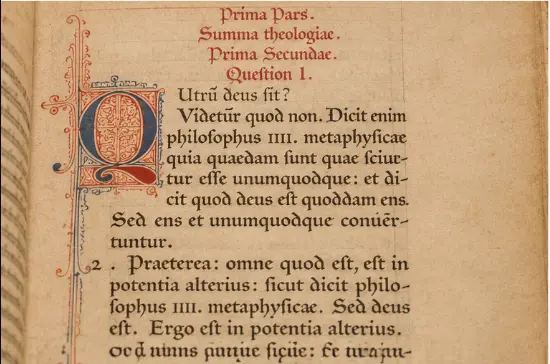 Prima Pars.
Summa theologiae.
Prima Secundae.
Question 1.
Utrū deus sit?
Q Videtūr quod non. Dicit enim
philosophus IIII. metaphysicae
quia quaedam sunt quae sciur-
tur esse unumquodque: et di-
cit quod deus est quoddam ens.
Sed ens et unumquodque conūer-
tuntur.
2 . Praeterea: omne quod est, est in
potentia alterius: sicut dicit philo-
sophus IIII. metaphysicae. Sed deus
est. Ergo est in potentia alterius.